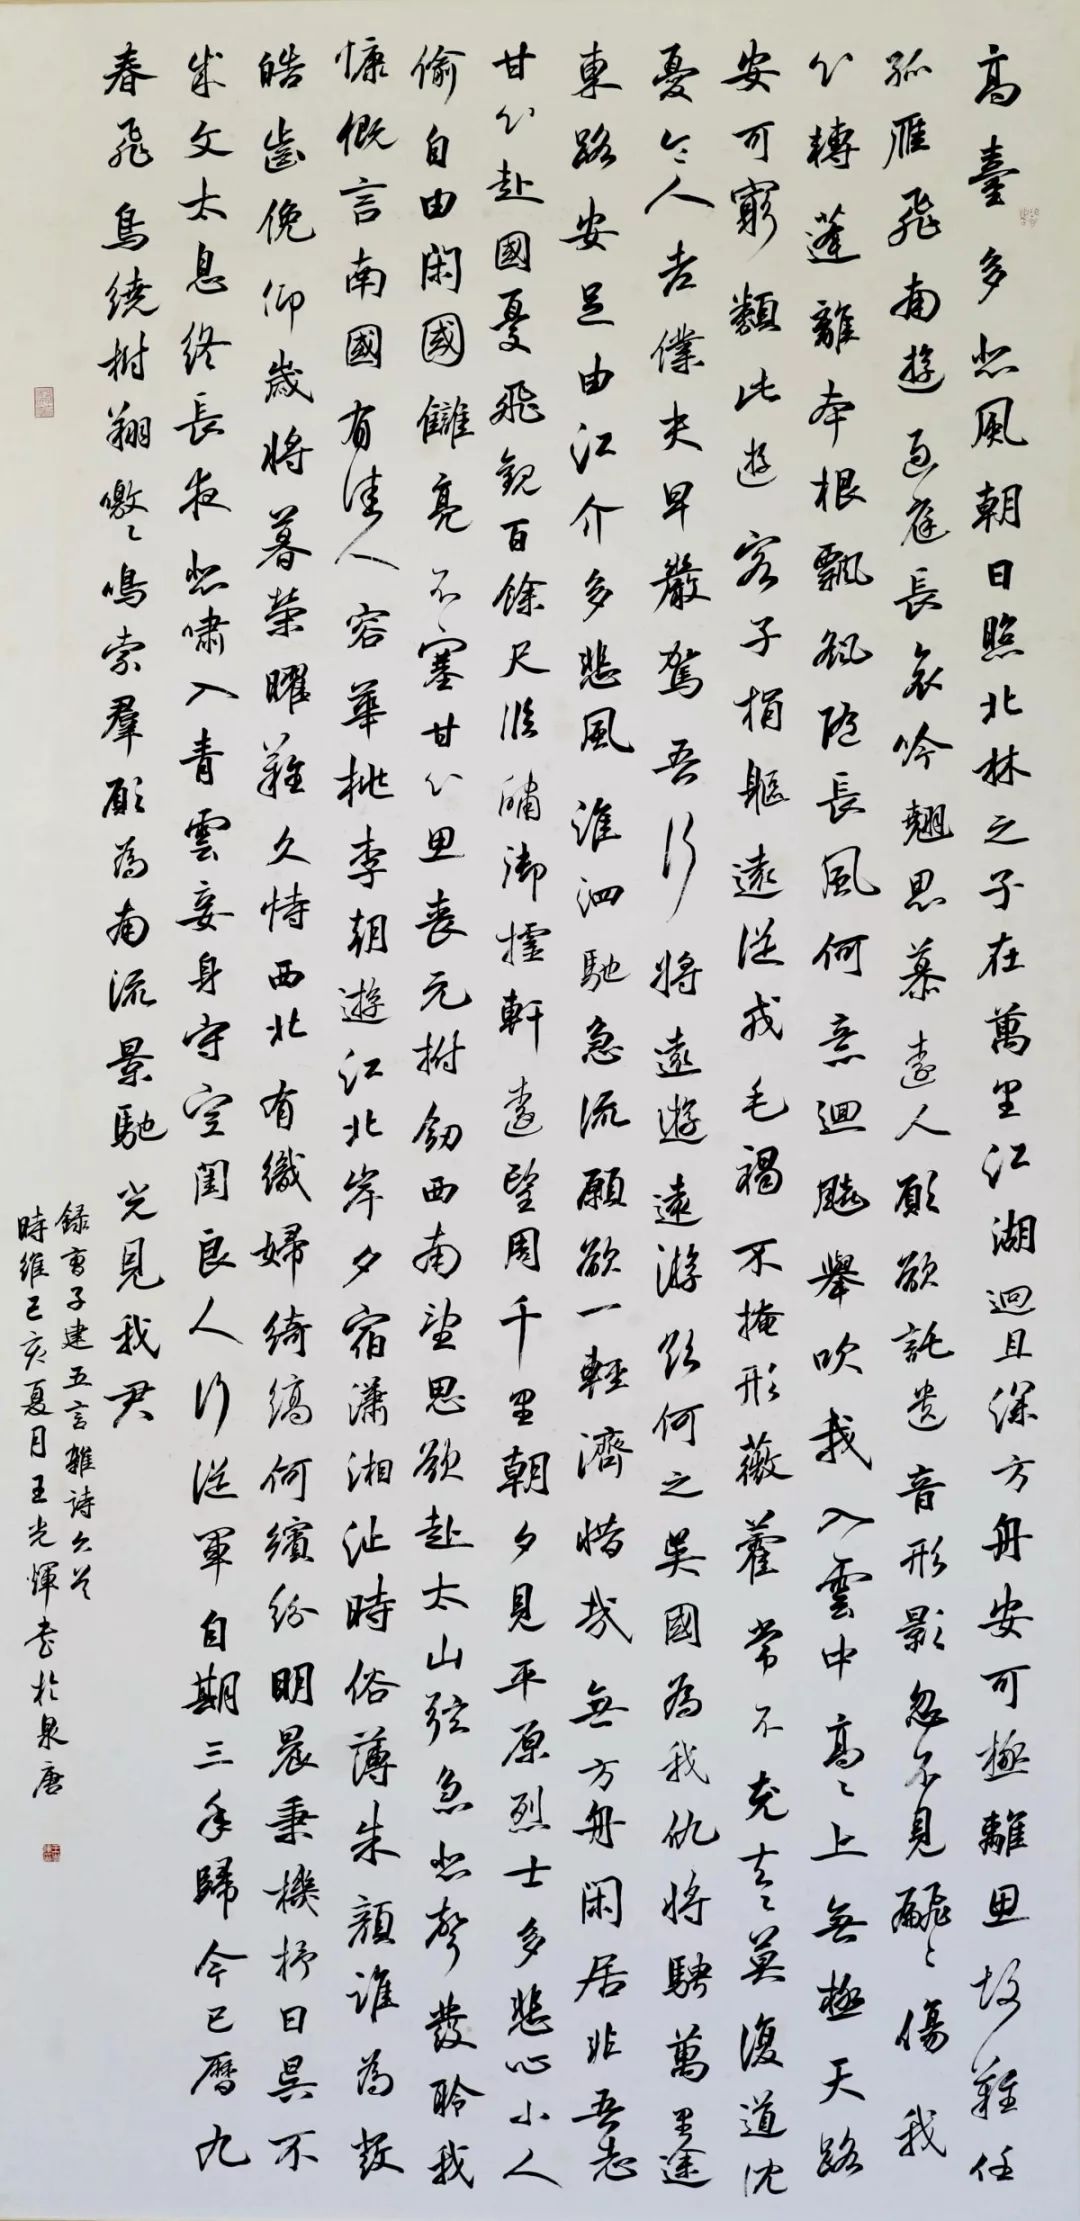 高臺多悲風朝日照北林之子在萬里江湖迥且深方舟安可極離思故難任
孤雁飛南遊過庭長哀吟翹思慕遠人願欲託遺音形影忽不見翩翩傷我
心轉蓬離本根飄飖隨長風何意迴飈舉吹我入雲中高高上無極天路
安可窮類此遊客子捐軀遠從戎毛褐不掩形薇藿常不充去去莫復道沈
憂令人老僕夫早嚴駕吾行將遠遊遠游欲何之吳國為我仇將騁萬里途
東路安足由江介多悲風淮泗馳急流願欲一輕濟惜哉無方舟閑居非吾志
甘心赴國憂飛觀百餘尺臨牖御欞軒遠望周千里朝夕見平原烈士多悲心小人
偷自由閑國讎亮不塞甘心思喪元拊劒西南望思欲赴太山弦急悲聲發聆我
慷慨言南國有佳人容華桃李朝遊江北岸夕宿瀟湘沚時俗薄朱顏誰為發
皓齒俛仰歲將暮榮曜難久恃西北有織婦綺縞何繽紛明晨秉機杼日昃不
成文太息終長夜悲嘯入青雲妾身守空閨良人行從軍自期三年歸今已曆九
春飛鳥繞樹翔噭噭鳴索羣願為南流景馳光見我君
錄曹子建五言雜詩六首
時維己亥夏月王光煇書於泉唐